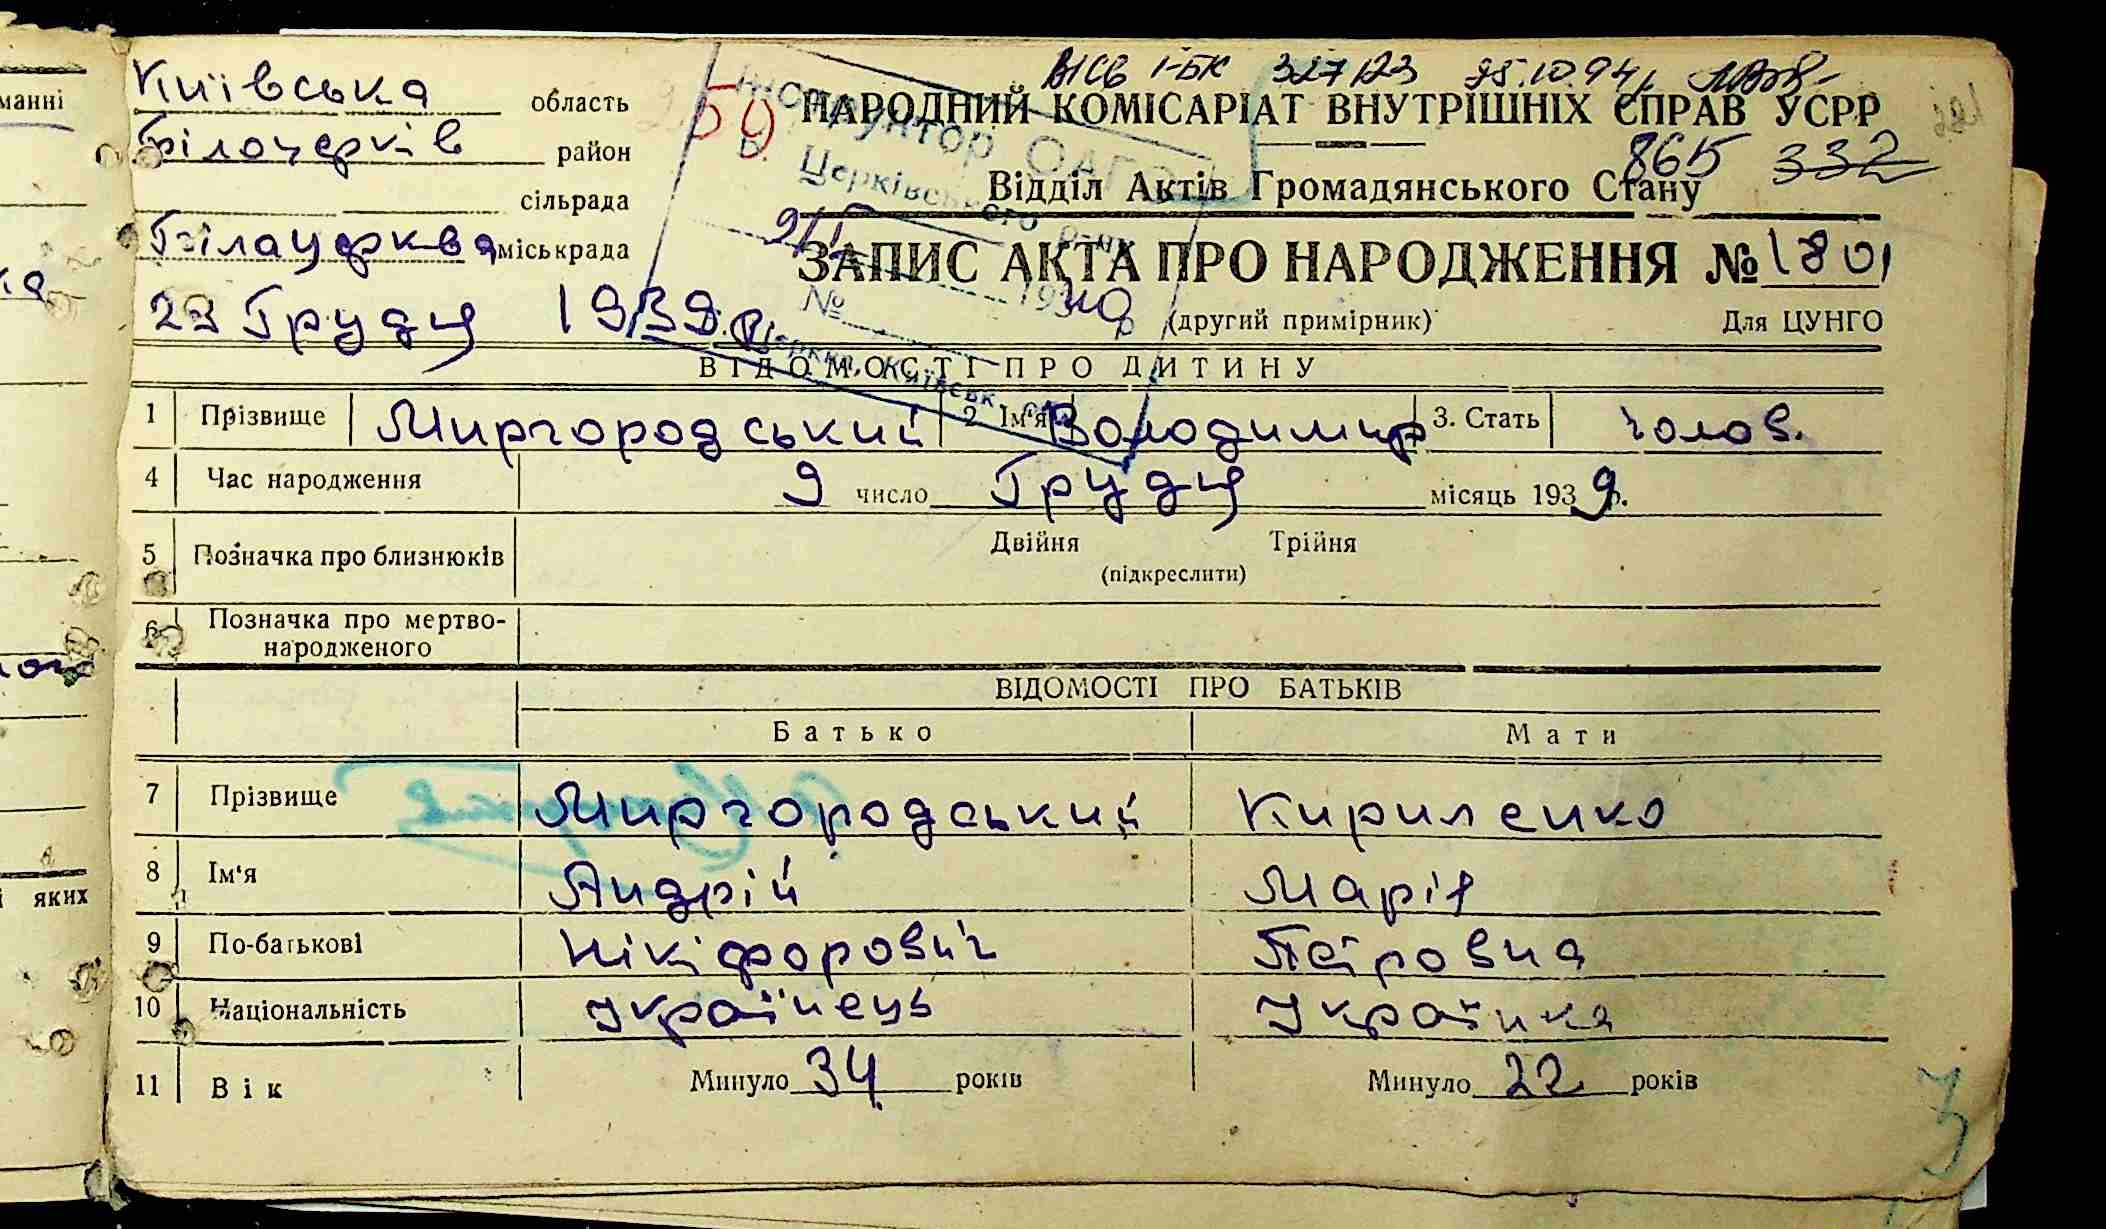 манні
яких
Київська область
Білочерків район
сільрада
Білацерква міськрада
23 Грудця 1939 р.
59
НІСВ І-БК 327123 25.10.94р.
НАРОДНИЙ КОМІСАРІАТ ВНУТРІШНІХ СПРАВ УСРР
865 332
Відділ Актів Громадянського Стану
Інструктор ОАГС
Б. Церківського р-ну
9/I 1940 р
№
ЗАПИС АКТА ПРО НАРОДЖЕННЯ № 1801
(другий примірник) Для ЦУНГО
ВІДОМОСТІ ПРО ДИТИНУ
1 Прізвище Миргородський 2. Ім'я Володимир 3. Стать чолов.
4 Час народження 9 число Грудця місяць 1939 р.
5 Позначка про близнюків Двійня Трійня
(підкреслити)
6 Позначка про мертво-
народженого
ВІДОМОСТІ ПРО БАТЬКІВ
Батько Мати
7 Прізвище Миргородський Кириленко
8 Ім'я Андрій Марія
9 По-батькові Нікіфорович Петровна
10 Національність Українець Українка
11 Вік Минуло 34 років Минуло 22 років
3